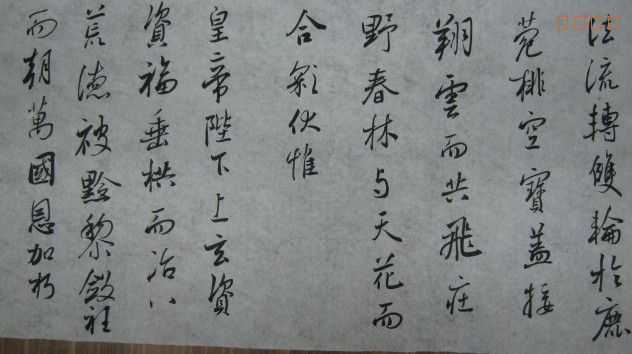 法流轉雙輪於鹿
菀排空寶蓋接
翔雲而共飛庄
野春林与天花而
合彩伏惟
皇帝陛下上玄資
資福垂拱而治八
荒德被黔黎斂衽
而朝萬國恩加朽